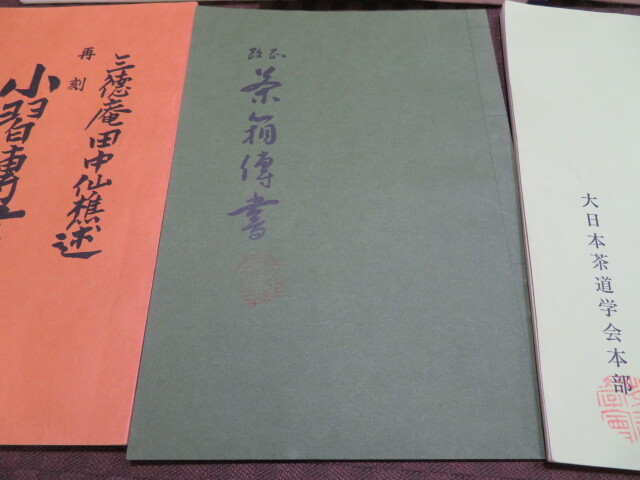 再刻
三徳庵田中仙樵述
小習傳
改正
茶箱傳書
大日本茶道学会本部